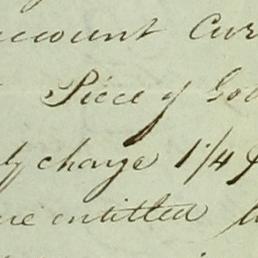 account Cur
Piece of Go
ly charge 1¼
are entitled